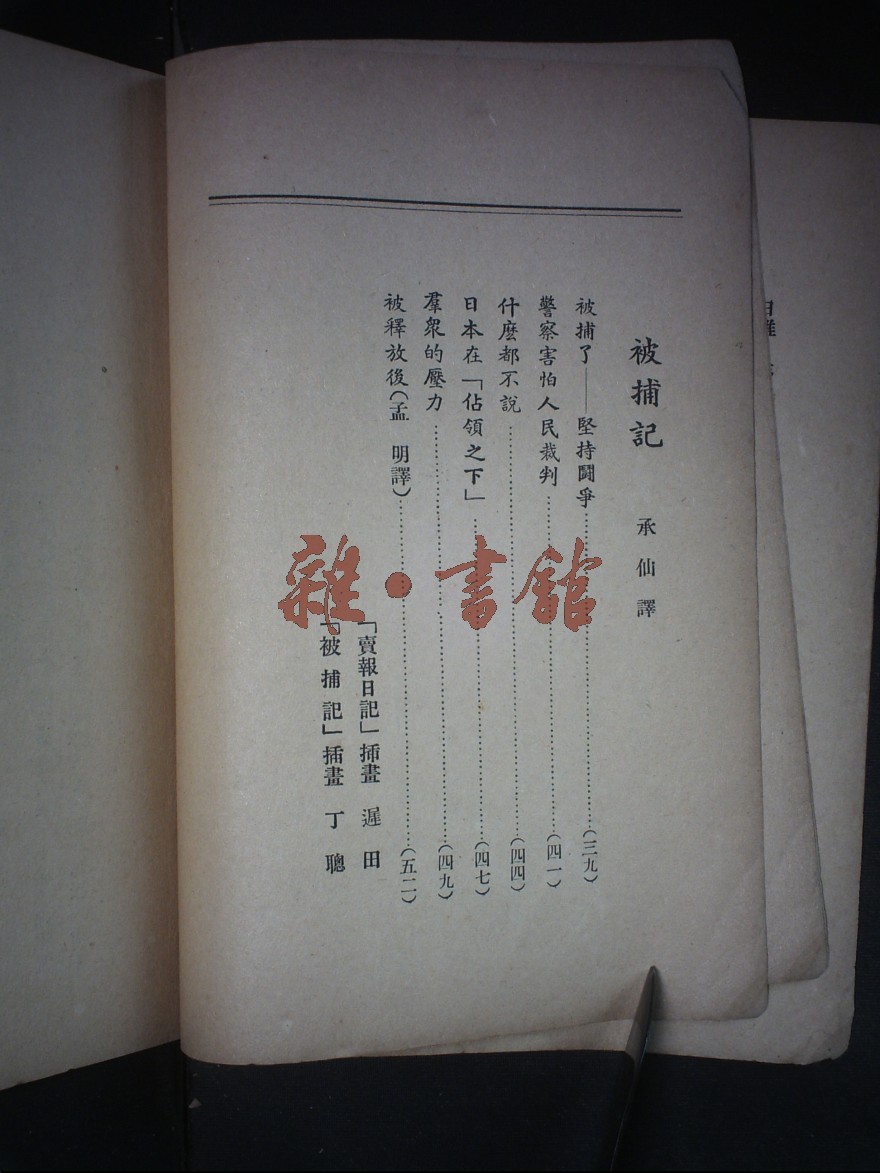 被捕記　承仙譯
被捕了——堅持鬪爭……(三九)
警察害怕人民裁判……(四一)
什麼都不說……(四四)
日本在「佔領之下」……(四七)
羣衆的壓力……(四九)
被釋放後(孟　明譯)……(五二)
「賣報日記」插畫　遲　田
「被捕記」插畫　丁　聰
雜·書館